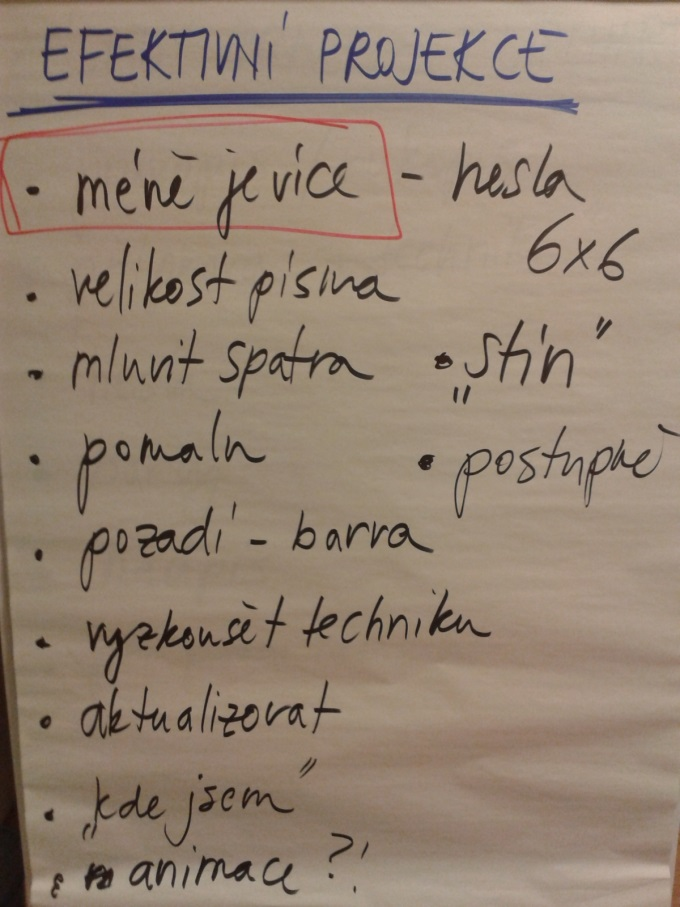 EFEKTIVNÍ PROJEKCE
• méně je více - hesla
6x6
• velikost písma
• mluvit spatra • „stín"
• pomalu • postupně
• pozadí - barva
• vyzkoušet techniku
• aktualizovat
• „kde jsem"
• animace ?!